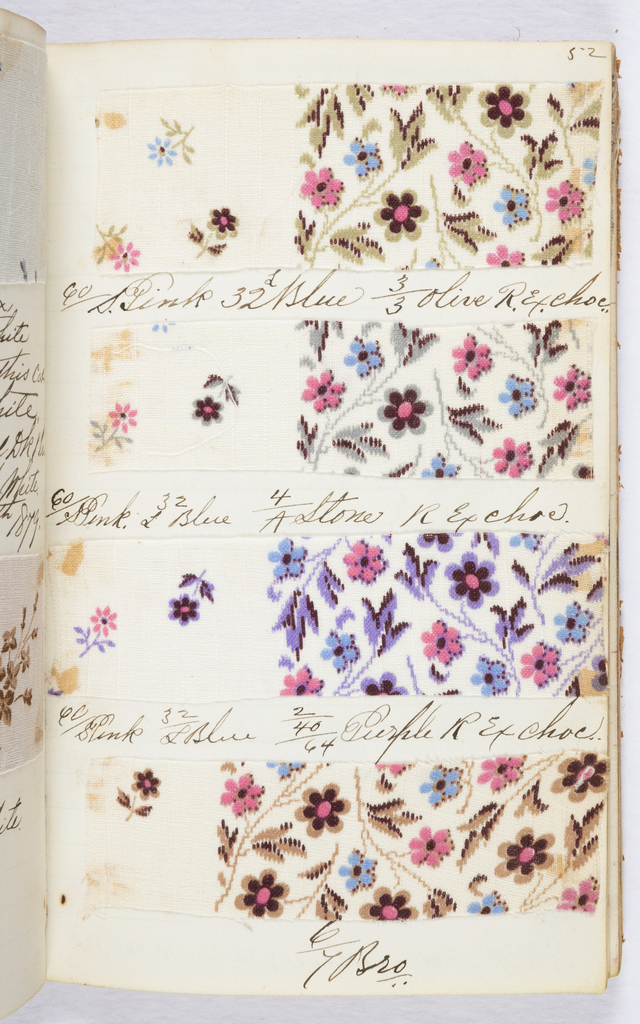 52
60 S. Pink 32 Blue 3/3 Olive R. Ex. choc.
60 S Pink. 32 L Blue 4/A Stone R Ex choc.
60 S Pink 32 L Blue 2/40/64 Purple R Ex choc.
6/7 Bro
hite
this
Dk
White
1879.
ite.